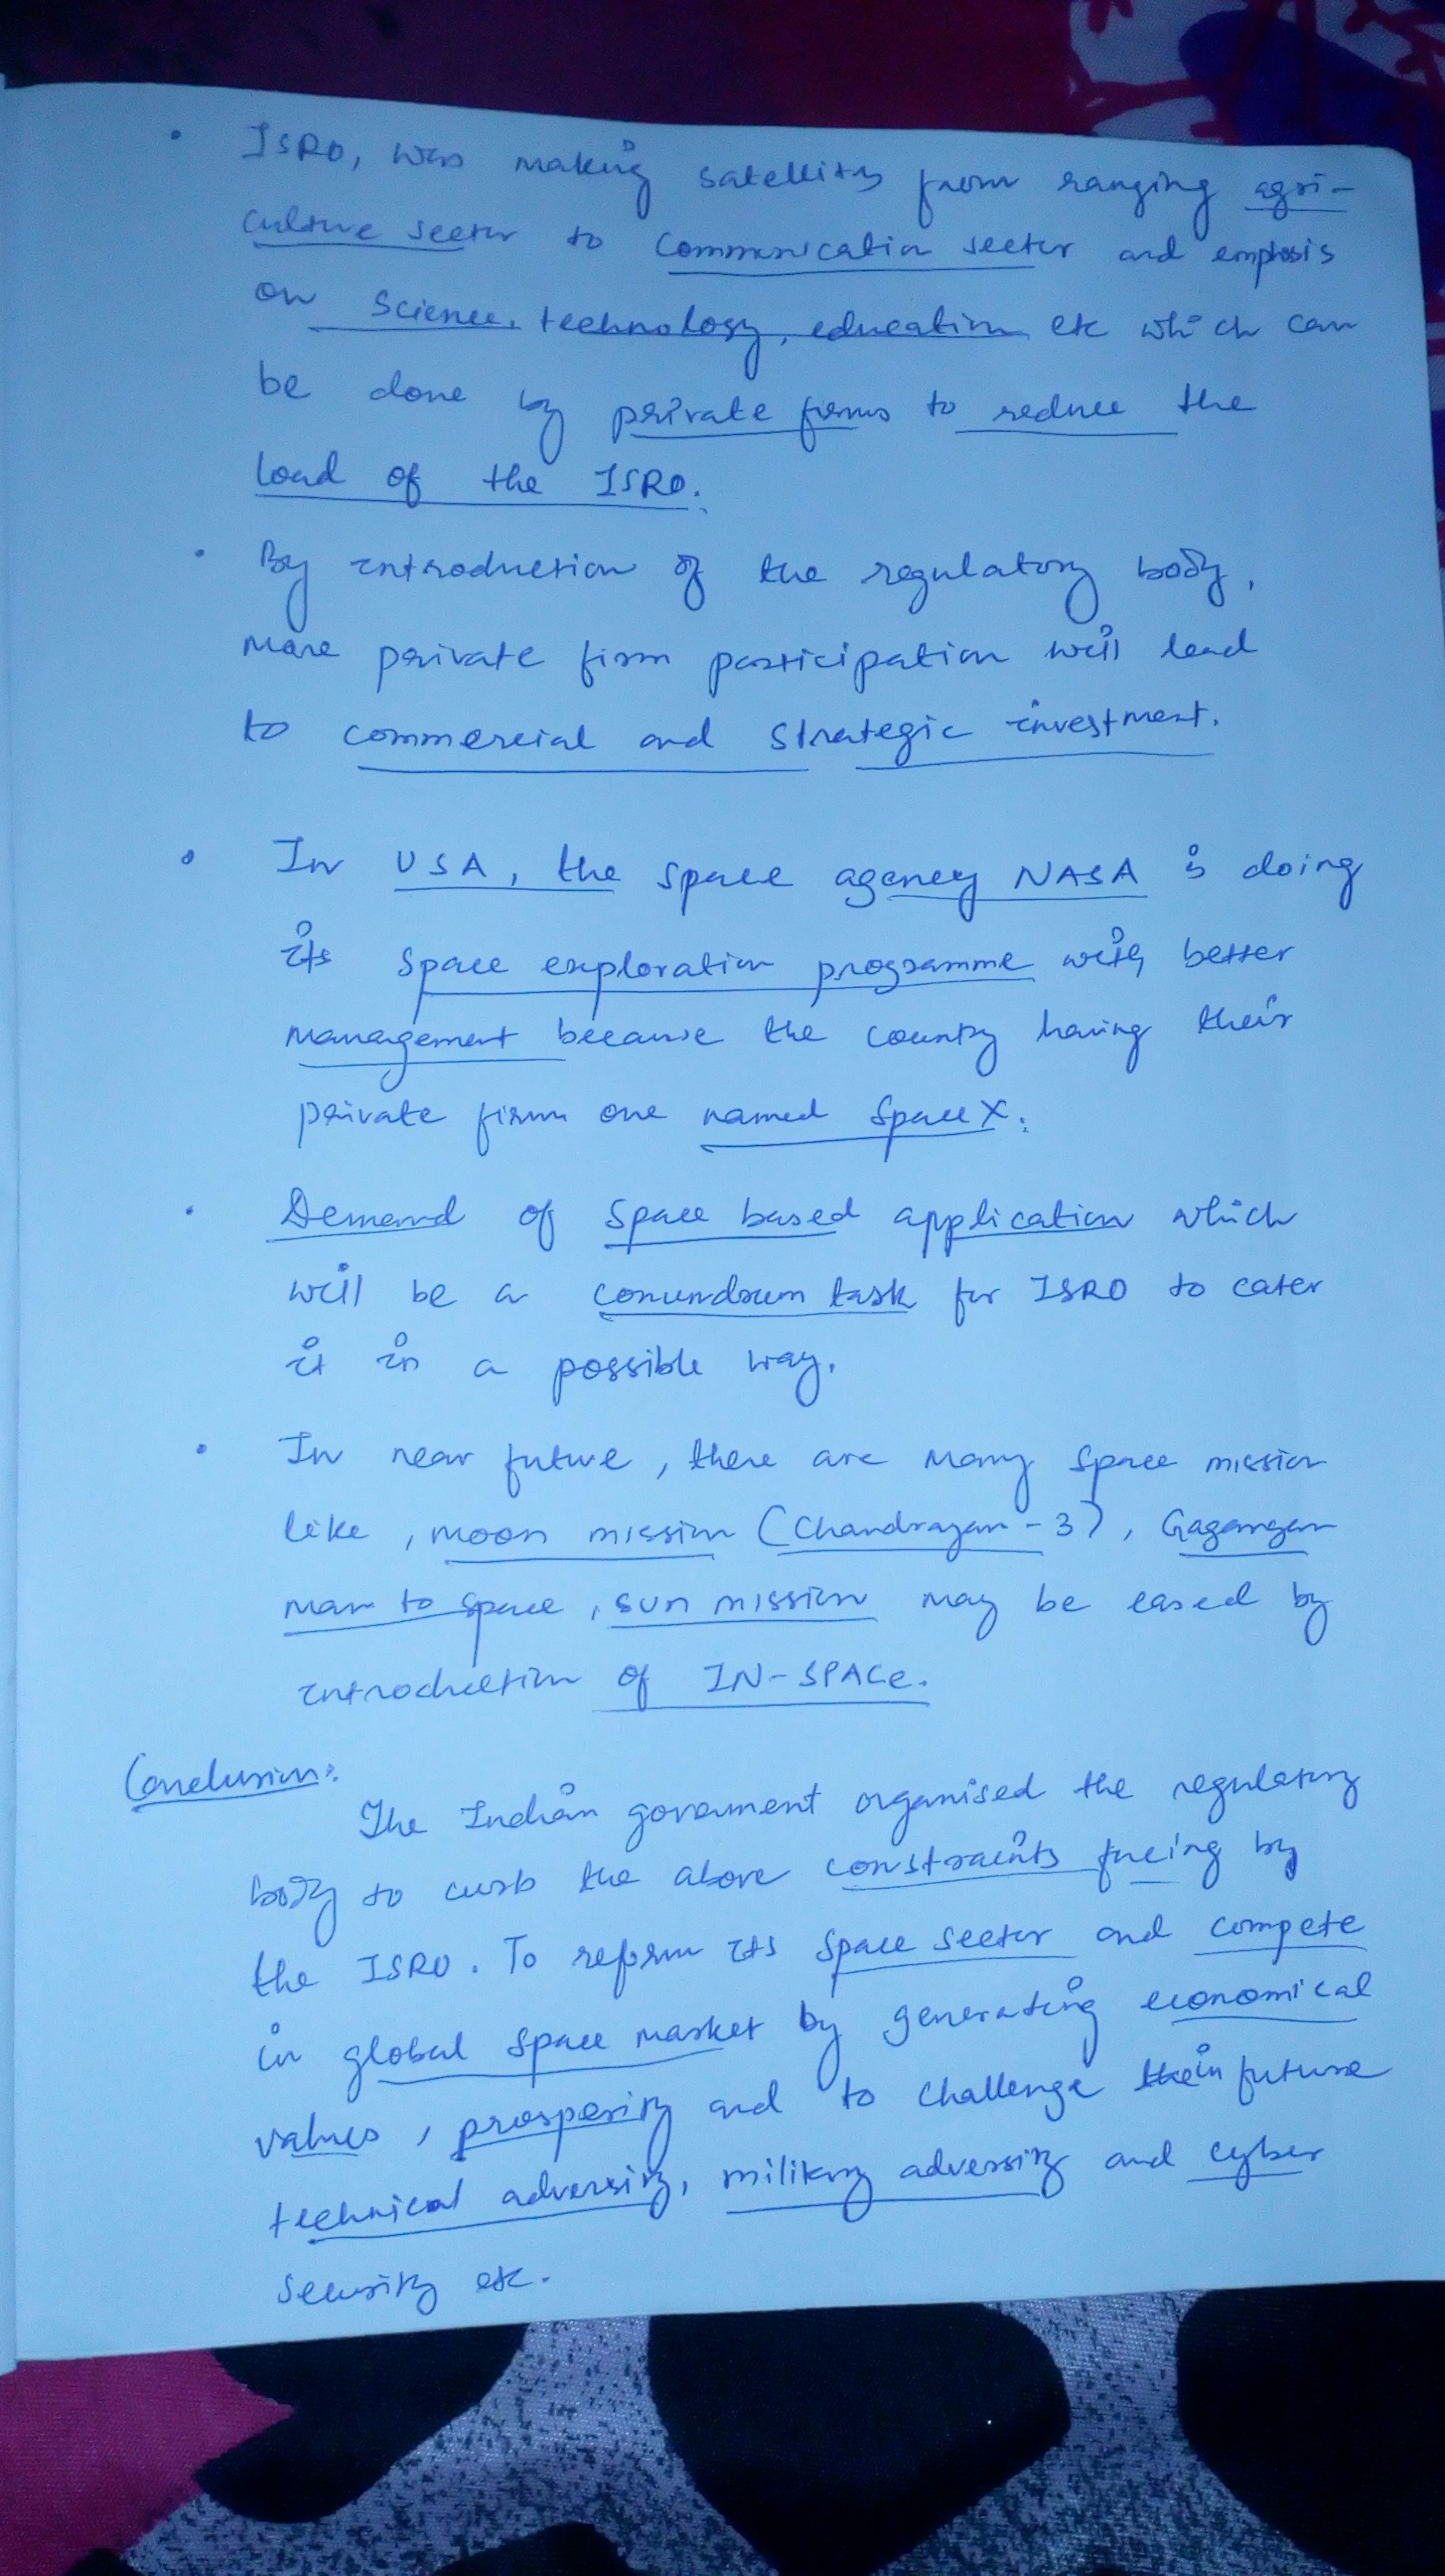 • ISRO, was making satellites from ranging agri-
culture sector to communication sector and emphasis
on science, technology, education etc which can
be done by private firms to reduce the
load of the ISRO.
• By introduction of the regulatory body,
more private firm participation will lead
to commercial and strategic investment.
• In USA, the space agency NASA is doing
its space exploration programme with better
management because the country having their
private firm one named SpaceX.
• Demand of space based application which
will be a conundrum task for ISRO to cater
it in a possible way.
• In near future, there are many space mission
like, moon mission (Chandrayan-3), Gaganyan
man to space, sun mission may be eased by
introduction of IN-SPACe.
Conclusion:
The Indian goverment organised the regulatory
body to curb the above constraints facing by
the ISRO. To reform its space sector and compete
in global space market by generating economical
values, prosperity and to challenge the in future
technical adversity, military adversity and cyber
security etc.